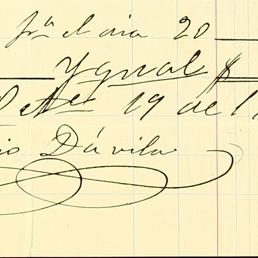 pa el dia 20
Ygual $
8bre 19 de 1
io Dávila